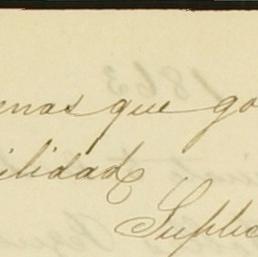 enas que go
ilidad
Suplic